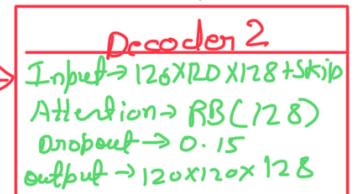 Decoder 2
Input → 120X120X128+Skip
Attention → RB(128)
Dropout → 0.15
output → 120x120x 128